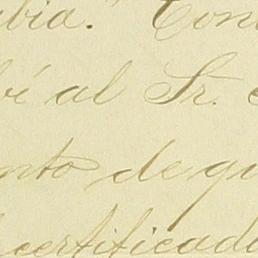 bia." Con
bí al Sr.
nto de qu
certificado